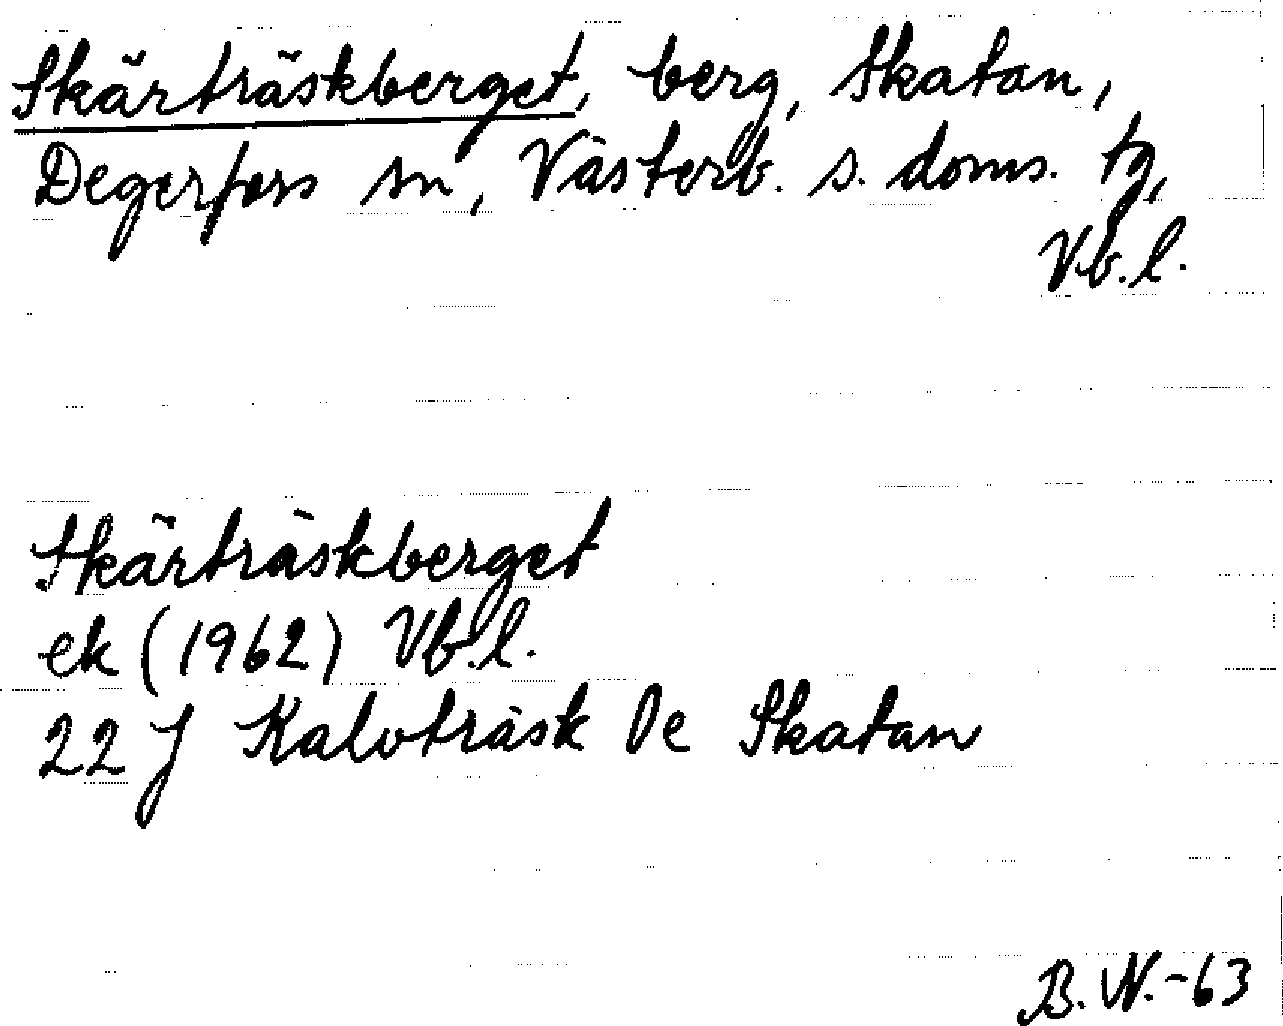 Skärträskberget, berg, Skatan,
Degerfors sn, Västerb. s. doms. tg,
Vb.l.
Skärträskberget
ek (1962) Vb.l.
22 J Kalvträsk 0e Skatan
B.W.-63